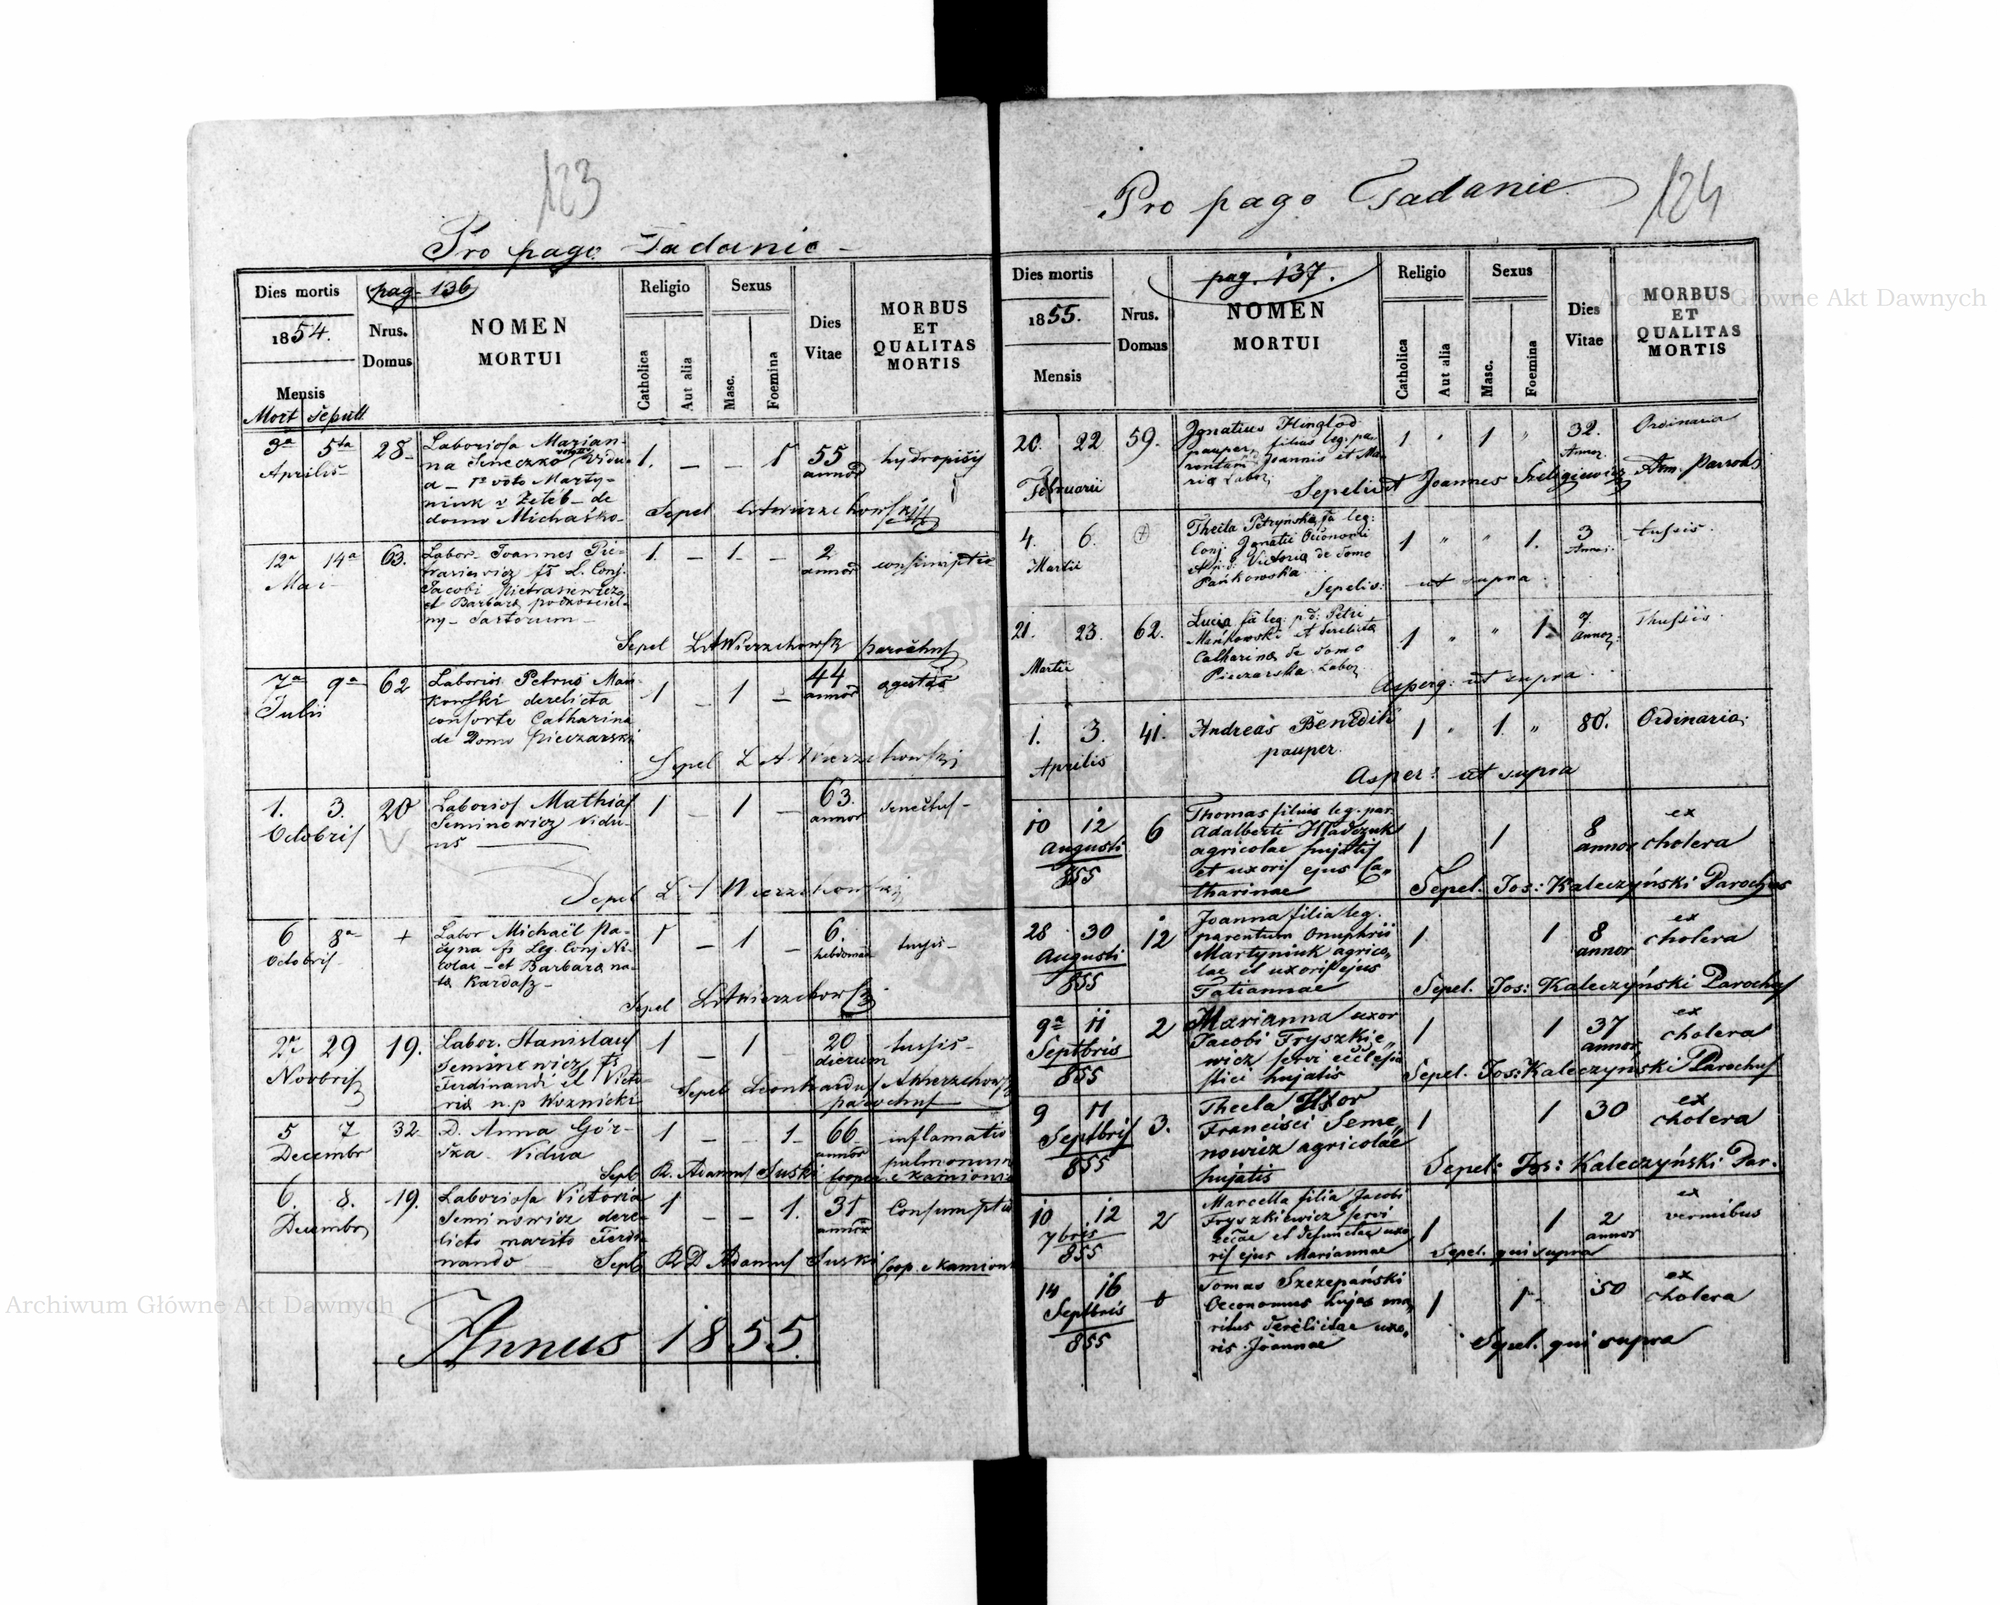 123
Pro pago Tadanie
Dies mortis
pag. 136
1854.
Nrus. Domus
NOMEN MORTUI
Religio
Sexus
Catholica
Aut alia
Masc.
Foemina
Dies Vitae
MORBUS ET QUALITAS MORTIS
Mensis
Mort sepult
3a 5ta 28 Laboriosa Marian- 1. – – 1 55 hydropisij
Aprilis na vidu- annor
a – 1o voto Marty-
niuk de
domo Michaśko-
Sepel LAWierzchowski
12a 14a 63. Labor. Joannes Pie- 1. – 1. – 2 consumptio
Mai trasiewicz fs L. Conj. annor
Jacobi Pietrasiewicz
et Barbara
Sartorum
Sepel LAWierzchowski parochus
7a 9a 62 Laborios Petrus Man- 1 – 1 – 44 egestas
Julii kowski derelicta annor
consorte Catharina
de Domo Pieczarski
Sepel L A Wierzchowski
1. 3. 20 Laborios Mathias 1 – 1 – 63. senectus
Octobris Seminowicz vidu- annor
us
Sepel L A Wierzchowski
6 8a + Labor Michaël Pa- 1 – 1 – 6. tussis
Octobris czyna fs Leg. Conj Ni- hebdomad
colae – et Barbara na-
ta Kardasz
Sepel LAWierzchowski
27 29 19. Labor. Stanislaus 1 – 1 – 20 tussis
Novbris Seminowicz fs dierum
Ferdinandi et Victo-
ria n.p Woznicki
Sepel Leonhardus AWierzchowski
parochus
5 7 32. D. Anna Gór- 1 – – 1 66 inflamatio
Decembr ska Vidua annor pulmonum
Sepel R. Adamus Suski cooper. Kamionc
6. 8. 19. Laboriosa Victoria 1 – – 1. 31 Consumptio
Decembr Seminowicz dere- annor
licto marito Ferdi-
nando
Sepel R D Adamus Suski Coop. Kamionc
Annus 1855.
124
Pro pago Tadanie
Dies mortis
pag. 137.
1855.
Nrus. Domus
NOMEN MORTUI
Religio
Sexus
Catholica
Aut alia
Masc.
Foemina
Dies Vitae
MORBUS ET QUALITAS MORTIS
Mensis
20. 22 59. Ignatius 1 " 1 " 32. Ordinaria
Februarii pauper, filius leg. pa- Annor.
rentum Joannis et Ma-
ria Labor.
Sepelivit Joannes Szeligiewicz Adm. Paroch
4. 6. + Thecla Petryńska fa leg: 1 " " 1. 3 tussis.
Martii Conj. Ignatii Oeconomi Annor.
Victoria de domo
Pańkowska
Sepeliv: ut supra
21. 23. 62. Lucia fa leg: p.d: Petri 1 " " 1. 7. Thussis.
Martii Mańkowski et derelicta annor.
Catharina de domo
Pieczarska Labor.
Asperg: ut supra
1. 3. 41. Andreas Benedik 1 " 1 " 80. Ordinaria.
Aprilis pauper.
Asper: ut supra
10 12 6 Thomas filius leg. par. 1 1 8 ex
Augusti Adalberti Hładczuk annor cholera
855 agricolae hujatis
et uxoris ejus Ca-
tharinae
Sepel. Jos: Kaleczyński Parochus
28 30 12 Joanna filia leg. 1 1 8 ex
Augusti parentum Onuphrii annor cholera
855 Martyniuk agrico-
lae et uxoris ejus
Tatiannae
Sepel. Jos: Kaleczyński Parochus
9a 11 2 Marianna uxor 1 1 37 ex
Septbris Jacobi Fryszkie- annor cholera
855 wicz servi ecclesia
stici hujatis
Sepel. Jos: Kaleczyński Parochus
9 11 3. Thecla Uxor 1 1 30 ex
Septbris Francisci Seme- cholera
855 nowicz agricolae
hujatis
Sepel: Jos: Kaleczyński Par.
10 12 2 Marcella filia Jacobi 1 1 2 ex
7bris Fryszkiewicz servi annor vermibus
855 eccae et defunctae uxo-
ris ejus Mariannae
Sepel. qui supra
14 16 + Tomas Szczepański 1 1 50 ex
Septbris Oeconomus hujas ma- cholera
855 ritus derelictae uxo-
ris Joannae
Sepel. qui supra
Archiwum Główne Akt Dawnych
Archiwum Główne Akt Dawnych